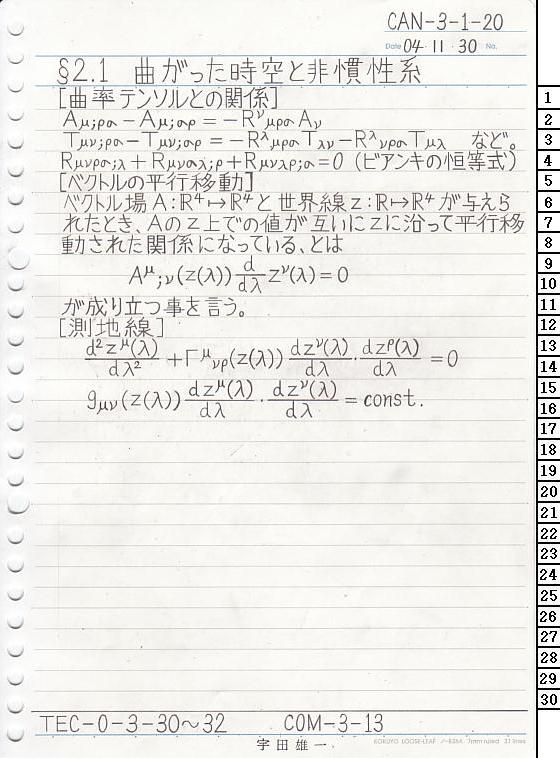 CAN-3-1-20
Date 04・11・30 No.
§2.1 曲がった時空と非慣性系
[曲率テンソルとの関係]
Aμ;ρσ−Aμ;σρ=−R^ν_μρσ A_ν
Tμν;ρσ−Tμν;σρ=−R^λ_μρσ T_λν−R^λ_νρσ T_μλ など。
Rμνρσ;λ+Rμνσλ;ρ+Rμνλρ;σ=0 (ビアンキの恒等式)
[ベクトルの平行移動]
ベクトル場 A:ℝ⁴↦ℝ⁴と世界線 z:ℝ↦ℝ⁴が与えら
れたとき、Aのz上での値が互いにzに沿って平行移
動された関係になっている、とは
A^μ_;ν(z(λ)) d/dλ z^ν(λ)=0
が成り立つ事を言う。
[測地線]
d²z^μ(λ)/dλ² +Γ^μ_νρ(z(λ)) dz^ν(λ)/dλ・dz^ρ(λ)/dλ =0
g_μν(z(λ)) dz^μ(λ)/dλ・dz^ν(λ)/dλ = const.
TEC-0-3-30〜32 COM-3-13
宇田雄一
KOKUYO LOOSE-LEAF ノ-836A 7mm ruled 31 lines
1
2
3
4
5
6
7
8
9
10
11
12
13
14
15
16
17
18
19
20
21
22
23
24
25
26
27
28
29
30